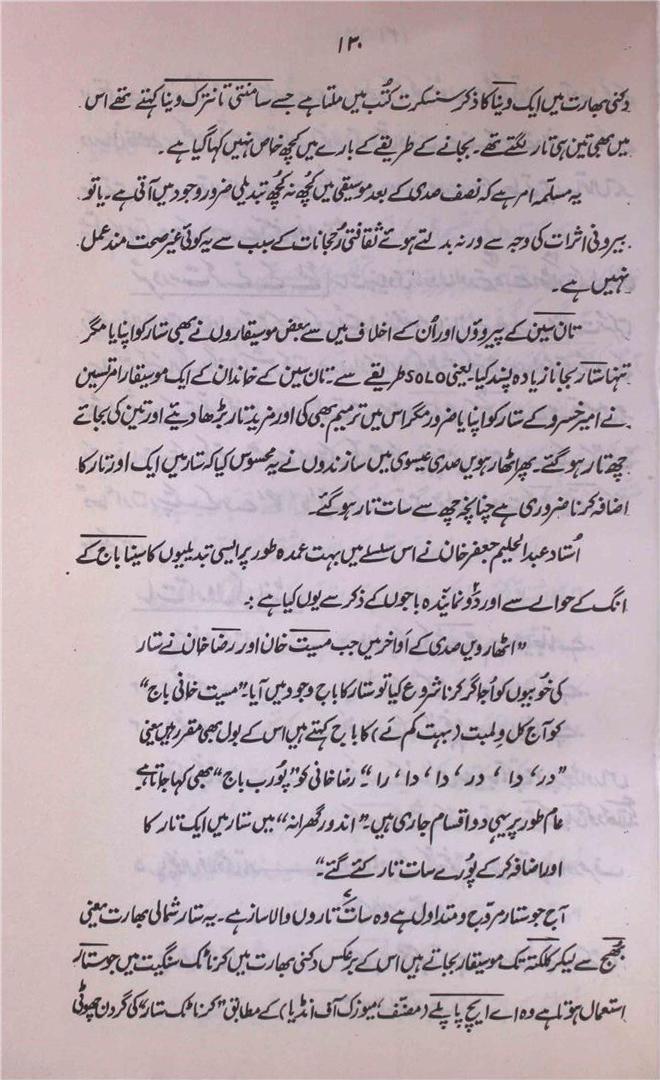 ۱۳۰
دکنی بھارت میں ایک وینا کا ذکر سنسکرت کُتب میں ملتا ہے جسے سامنتی تانترک وینا کہتے تھے اس
میں بھی تین ہی تار لگتے تھے۔ بجانے کے طریقے کے بارے میں کچھ خاص نہیں کہا گیا ہے۔
یہ مسلّمہ امر ہے کہ نصف صدی کے بعد موسیقی میں کُچھ نہ کُچھ تبدیلی ضرور وجود میں آتی ہے۔ یا تو
بیرونی اثرات کی وجہ سے ورنہ بدلتے ہوئے ثقافتی رُحجانات کے سبب سے یہ کوئی غیر صحت مند عمل
نہیں ہے۔
تان سین کے پیروؤں اور اُن کے اخلاف میں سے بعض موسیقاروں نے بھی ستار کو اپنایا مگر
تنہا ستار بجانا زیادہ پسند کیا۔ یعنی SOLO طریقے سے۔ تان سین کے خاندان کے ایک موسیقار امرتسین
نے امیر خسرو کے ستار کو اپنایا ضرور مگر اس میں ترمیم بھی کی اور مزید تار بڑھا دیئے اور تین کی بجائے
چھ تار ہو گئے۔ پھر اٹھارہویں صدی عیسوی میں سازندوں نے یہ محسوس کیا کہ ستار میں ایک اور تار کا
اضافہ کرنا ضروری ہے چنانچہ چھ سے سات تار ہو گئے۔
اُستاد عبدالحلیم جعفر خان نے اس سلسلے میں بہت عمدہ طور پر ایسی تبدیلیوں کا سینا باج کے
انگ کے حوالے سے اور دو نمایندہ باجوں کے ذکر سے یوں کیا ہے :۔
”اٹھارویں صدی کے اواخر میں جب مسیت خان اور رضا خان نے ستار
کی خُوبیوں کو اُجاگر کرنا شروع کیا تو ستار کا باج وجود میں آیا۔ ”مسیت خانی باج“
کو آج کل وِلمبت (بہت کم لَے) کا باج کہتے ہیں اس کے بول بھی مقرر ہیں یعنی
”در، دا، در، دا، دا، را“۔ رضا خانی کو ”پُورب باج“ بھی کہا جاتا ہے
عام طور پر یہی دو اقسام جاری ہیں۔ ”اندور گھرانہ“ میں ستار میں ایک تار کا
اور اضافہ کر کے پُورے سات تار کئے گئے“۔
آج جو ستار مروّج و متداول ہے وہ سات تاروں والا ساز ہے۔ یہ ستار شمالی بھارت یعنی
بھج سے لیکر کلکتہ تک موسیقار بجاتے ہیں اس کے برعکس دکنی بھارت میں کرناٹک سنگیت میں جو ستار
استعمال ہوتا ہے وہ اے ایچ پاپلے (مصنّف، میوزک آف انڈیا) کے مطابق ”کرناٹک ستار“ کی گردن چھوٹی